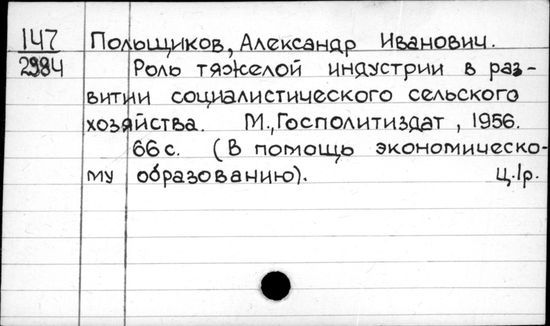 147 Польщиков, Александр Иванович.
2984 Роль тяжелой индустрии в раз-
витии социалистического сельского
хозяйства. М., Госполитиздат, 1956.
66 с. (В помощь экономическо-
му образованию). Ц. 1р.